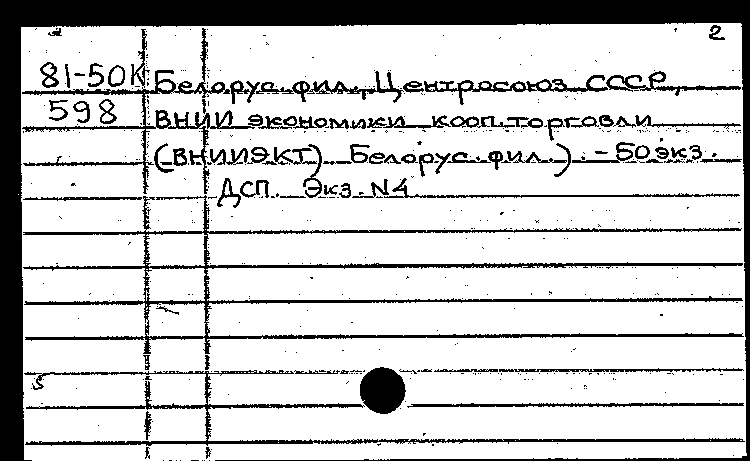 2
81-50К Белорус. фил., Центросоюз СССР,
598 ВНИИ экономики кооп. торговли
(ВНИИЭКТ). Белорус. фил.). - 50 экз.
ДСП. Экз. N4